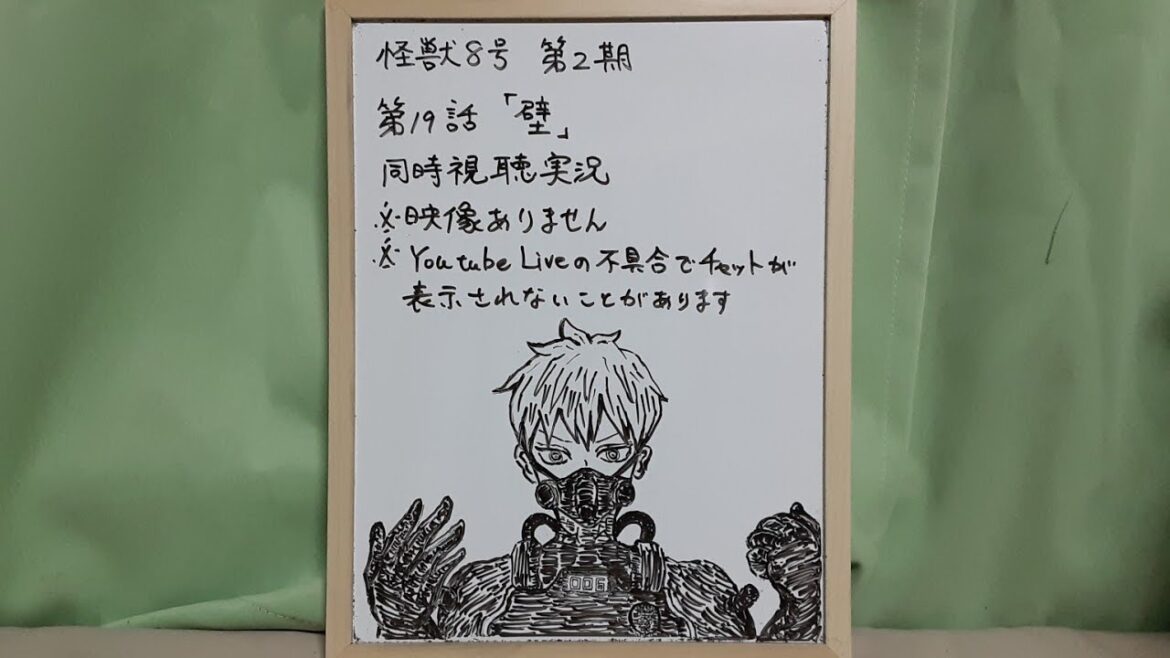 怪獣8号 第2期
第19話「壁」
同時視聴実況
※映像ありません
※Youtube Liveの不具合でチャットが
表示されないことがあります
006